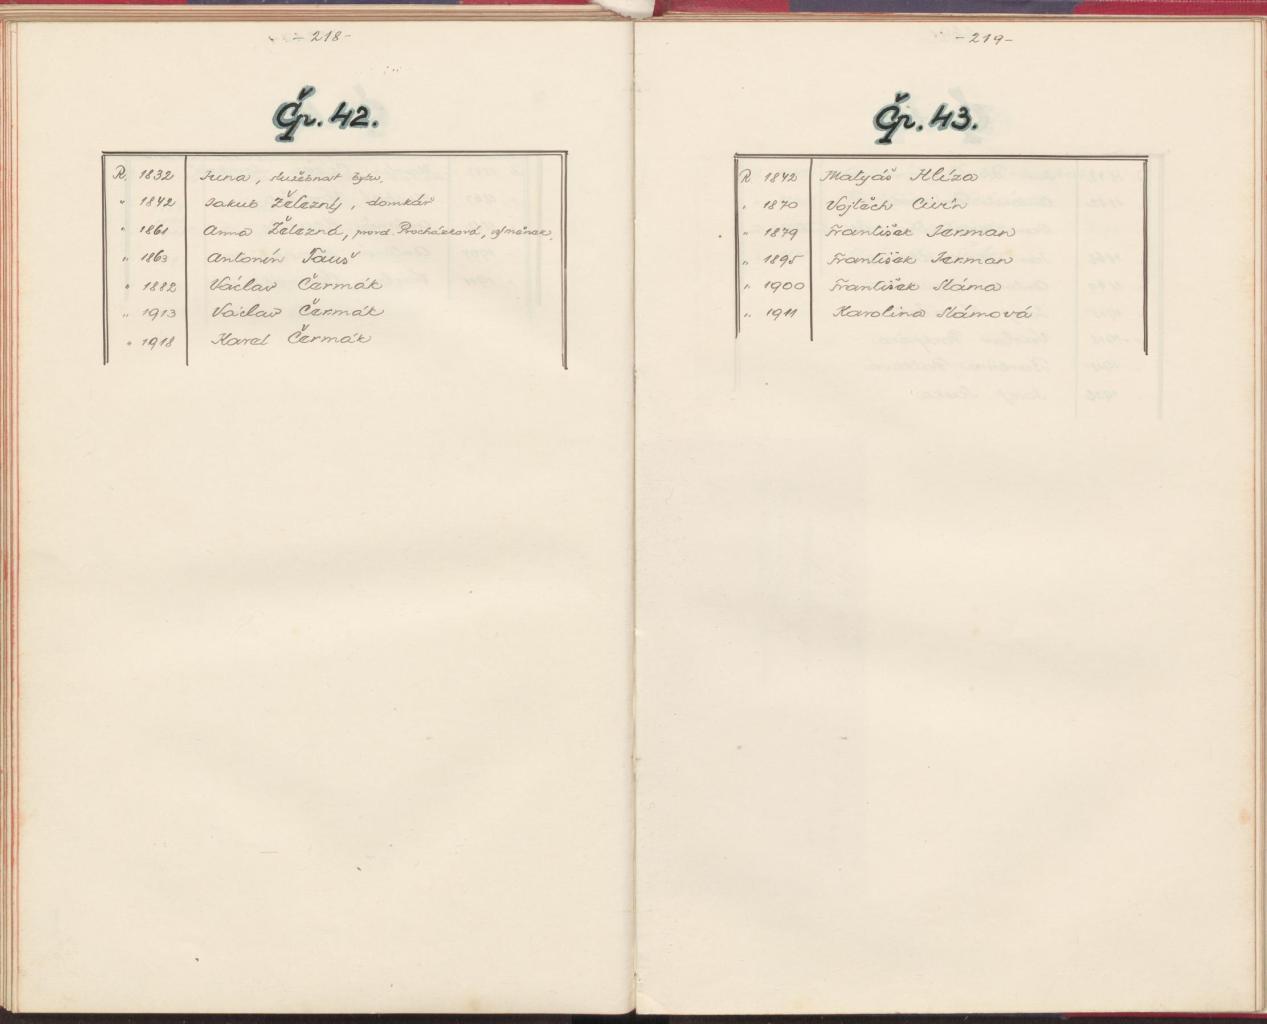 - 218 -
Čp. 42.
R. 1832 služebnost bytu.
" 1842 Jakub Železný, domkář
" 1861 Anna Železná, provd. Procházková, výměnek.
" 1863 Antonín Tauš
" 1882 Václav Čermák
" 1913 Václav Čermák
" 1918 Karel Čermák
- 219 -
Čp. 43.
R 1842 Matyáš Hlíza
" 1870 Vojtěch Civín
" 1879 František Jerman
" 1895 František Jerman
" 1900 František Sláma
" 1911 Karolina Slámová